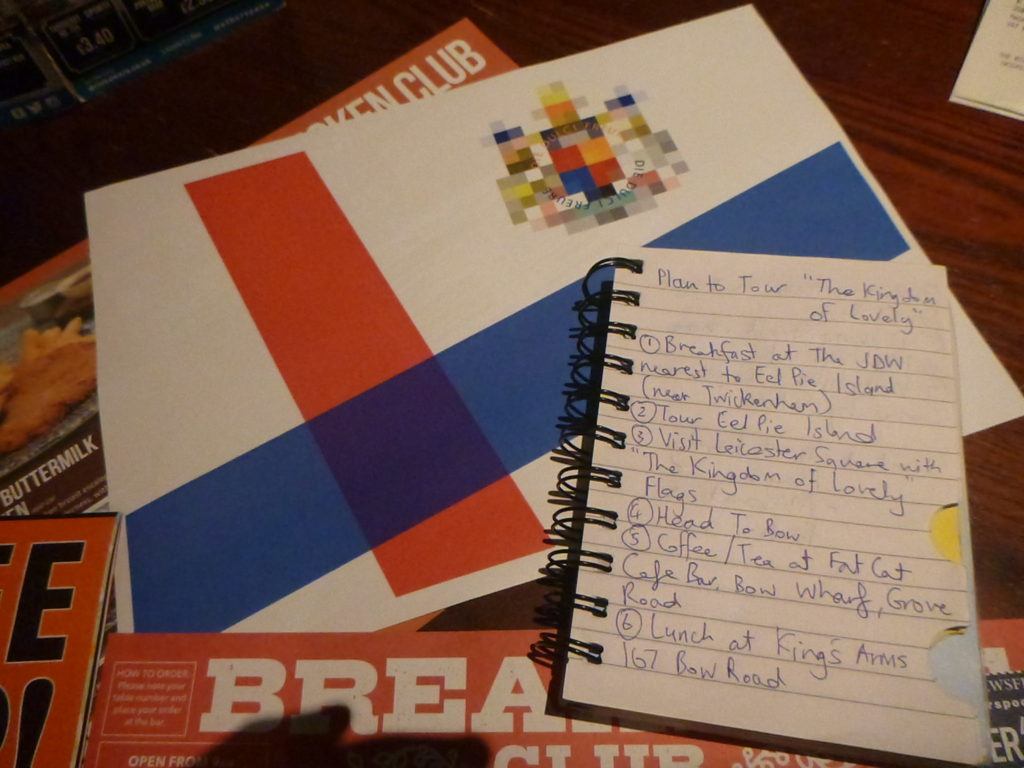 £3.40
KEN CLUB
DIE DULCI FREUERE
BUTTERMILK
EE
HOW TO ORDER
Please note your
table number and
place your order
at the bar.
BREA
CLUB
OPEN FROM
Plan to Tour "The Kingdom
of Lovely"
① Breakfast at The JDW
nearest to Eel Pie Island
(near Twickenham)
② Tour Eel Pie Island
③ Visit Leicester Square with
"The Kingdom of Lovely"
Flags
④ Head To Bow
⑤ Coffee/Tea at Fat Cat
Cafe Bar, Bow Wharf, Grove
Road
⑥ Lunch at King's Arms
167 Bow Road